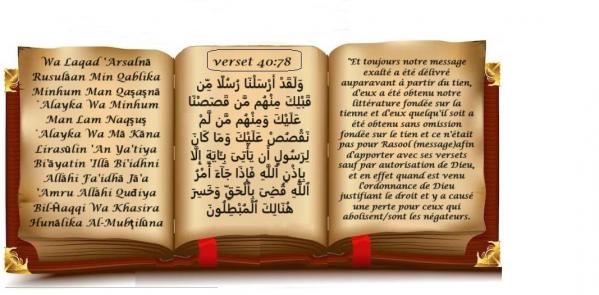 Wa Laqad 'Arsalnā
Rusulāan Min Qablika
Minhum Man Qaşaşnā
`Alayka Wa Minhum
Man Lam Naqşuş
`Alayka Wa Mā Kāna
Lirasūlin 'An Ya'tiya
Bi'āyatin 'Illā Bi'idhni
Allāhi Fa'idhā Jā'a
'Amru Allāhi Quđiya
Bil-Ĥaqqi Wa Khasira
Hunālika Al-Mubţilūna
verset 40:78
وَلَقَدْ أَرْسَلْنَا رُسُلًا مِّن
قَبْلِكَ مِنْهُم مَّن قَصَصْنَا
عَلَيْكَ وَمِنْهُم مَّن لَّمْ
نَقْصُصْ عَلَيْكَ وَمَا كَانَ
لِرَسُولٍ أَن يَأْتِىَ بِـَٔايَةٍ إِلَّا
بِإِذْنِ ٱللَّهِ فَإِذَا جَآءَ أَمْرُ
ٱللَّهِ قُضِىَ بِٱلْحَقِّ وَخَسِرَ
هُنَالِكَ ٱلْمُبْطِلُونَ
"Et toujours notre message
exalté a été délivré
auparavant à partir du tien,
d'eux a été obtenu notre
littérature fondée sur la
tienne et d'eux quelqu'il soit a
été obtenu sans omission
fondée sur le tien et ce n'était
pas pour Rasool (message)afin
d'apporter avec ses versets
sauf par autorisation de Dieu,
et en effet quand est venu
l'ordonnance de Dieu
justifiant le droit et y a causé
une perte pour ceux qui
abolisent/sont les négateurs.